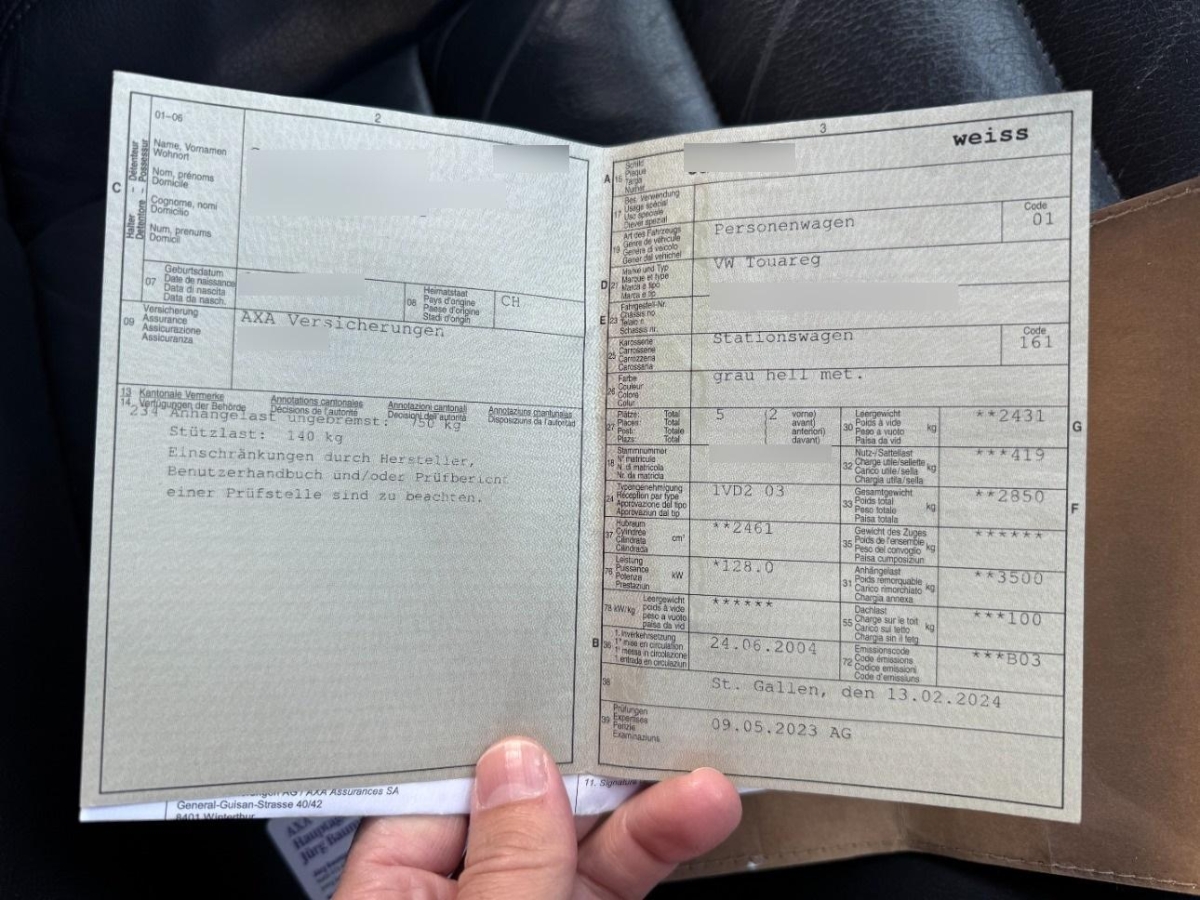 2
01-06
Name, Vornamen
Wohnort
Nom, prénoms
Domicile
Cognome, nomi
Domicilio
Num, prenums
Domicil
C
Halter - Détenteur
Detentore - Possessur
07
Geburtsdatum
Date de naissance
Data di nascita
Data da nasch.
08
Heimatstaat
Pays d'origine
Paese d'origine
Stadi d'origin
CH
09
Versicherung
Assurance
Assicurazione
Assicuranza
AXA Versicherungen
13 Kantonale Vermerke
Annotations cantonales
Annotazioni cantonali
Annotaziuns chantunalas
14 Verfügungen der Behörde
Décisions de l'autorité
Decisioni dell'autorità
Disposiziuns da l'autoritad
231 Anhängelast ungebremst: 750 kg
Stützlast: 140 kg
Einschränkungen durch Hersteller,
Benutzerhandbuch und/oder Prüfbericht
einer Prüfstelle sind zu beachten.
AXA Assurances SA
General-Guisan-Strasse 40/42
8401 Winterthur
3
weiss
A
15
Schild
Plaque
Targa
Numer
17
Bes. Verwendung
Usage spécial
Uso speciale
Diever spezial
19
Art des Fahrzeugs
Genre de véhicule
Genere di veicolo
Gener dal vehichel
Personenwagen
Code
01
D
21
Marke und Typ
Marque et type
Marca e tipo
Marca e tip
VW Touareg
E
23
Fahrgestell-Nr.
Châssis no
Telaio n.
Schassis nr.
25
Karosserie
Carrosserie
Carrozzeria
Carossaria
Stationswagen
Code
161
26
Farbe
Couleur
Colore
Colur
grau hell met.
27
Plätze: Total
Places: Total
Posti: Totale
Plazs: Total
5 (2 vorne)
avant)
anteriori)
davant)
30
Leergewicht
Poids à vide
Peso a vuoto
Paisa da vid
kg
**2431
G
18
Stammnummer
N° matricule
N. di matricola
Nr. da matricla
32
Nutz-/Sattellast
Charge utile/sellette
Carico utile/sella
Chargia utila/sella
kg
***419
24
Typengenehmigung
Réception par type
Approvazione del tipo
Approvaziun dal tip
1VD2 03
33
Gesamtgewicht
Poids total
Peso totale
Paisa totala
kg
**2850
F
37
Hubraum
Cylindrée
Cilindrata
Cilindrada
cm³
**2461
35
Gewicht des Zuges
Poids de l'ensemble
Peso del convoglio
Paisa cumposiziun
kg
******
76
Leistung
Puissance
Potenza
Prestaziun
kW
*128.0
31
Anhängelast
Poids remorquable
Carico rimorchiato
Chargia annexa
kg
**3500
78 kW/kg
Leergewicht
poids à vide
peso a vuoto
paisa da vid
******
55
Dachlast
Charge sur le toit
Carico sul tetto
Chargia sin il tetg
kg
***100
B
36
1. Inverkehrsetzung
1re mise en circulation
1a messa in circolazione
1. entrada en circulaziun
24.06.2004
72
Emissionscode
Code émissions
Codice emissioni
Code d'emissiuns
***B03
38
St. Gallen, den 13.02.2024
39
Prüfungen
Expertises
Perizie
Examinaziuns
09.05.2023 AG
11. Signature